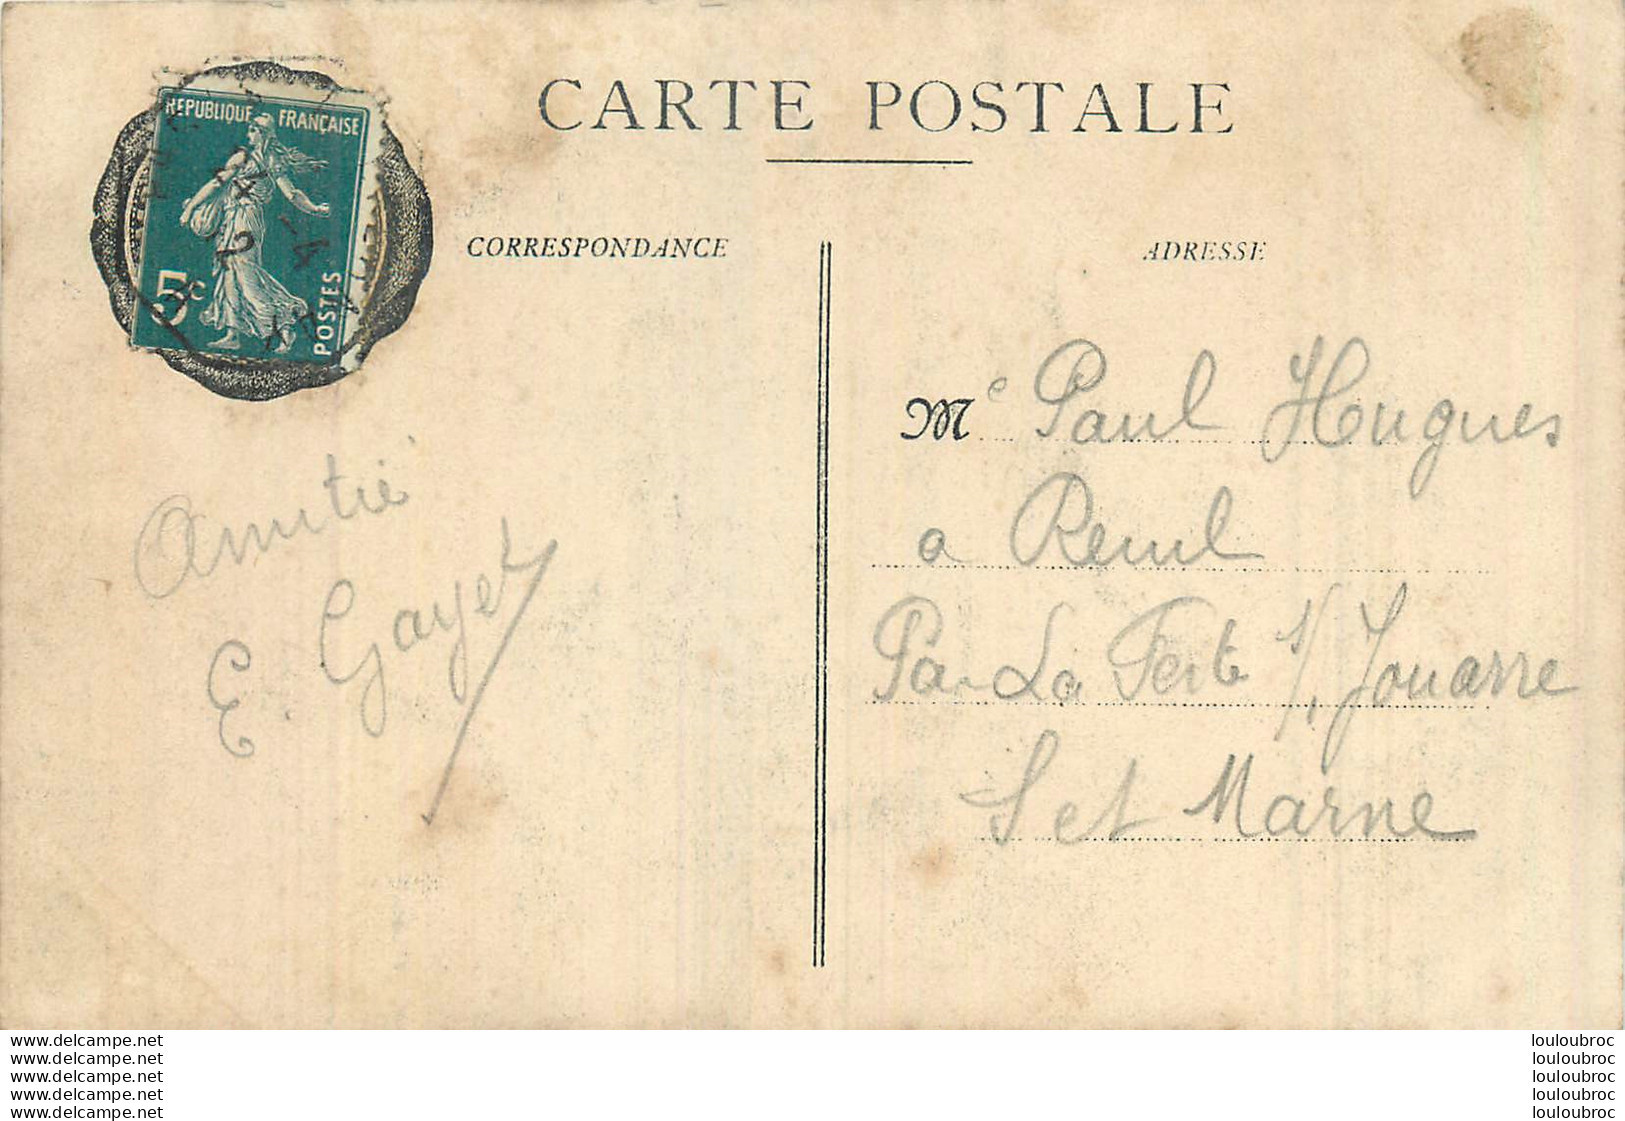 CARTE POSTALE
REPUBLIQUE FRANÇAISE
5c
POSTES
CORRESPONDANCE
ADRESSE
Me Paul Hugues
a Reuil
Par La Ferte s/ Jouarre
S et Marne
Amitié
E. Gayet
www.delcampe.net
www.delcampe.net
www.delcampe.net
www.delcampe.net
www.delcampe.net
louloubroc
louloubroc
louloubroc
louloubroc
louloubroc